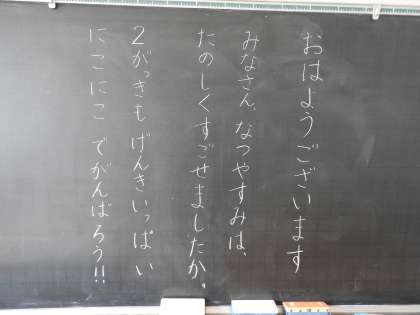 おはようございます
みなさん、なつやすみは、
たのしくすごせましたか。
2がっきもげんきいっぱい
にこにこ でがんばろう!!